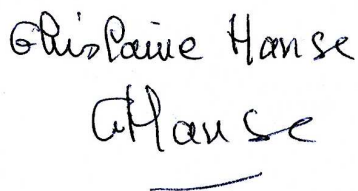 Ghislaine Hanse
GHanse